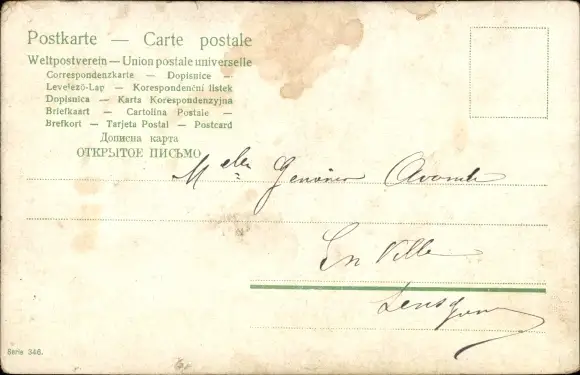 Postkarte — Carte postale
Weltpostverein — Union postale universelle
Correspondenzkarte — Dopisnice —
Levelező-Lap — Korespondenční listek
Dopisnica — Karta Korespondenzyjna
Briefkaart — Cartolina Postale —
Brefkort — Tarjeta Postal — Postcard
Дописна карта
ОТКРЫТОЕ ПИСЬМО
Melle
En Ville
Serie 346.